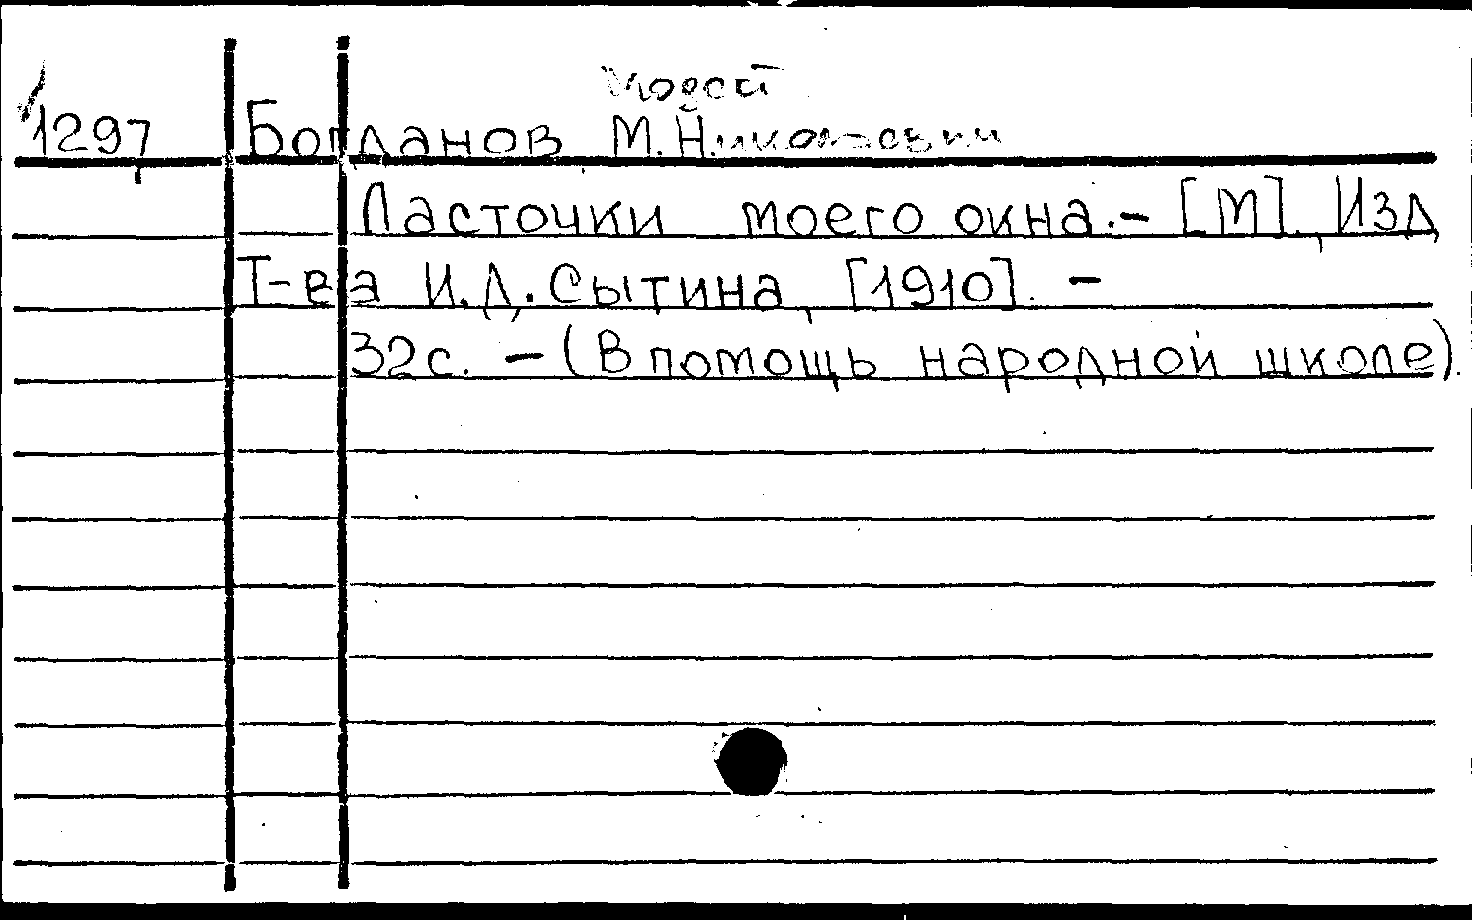 Модест
1297 Богданов М. Николаевич
Ласточки моего окна.- [М], Изд
Т-ва И.Д. Сытина, [1910]. -
32с. - (В помощь народной школе).